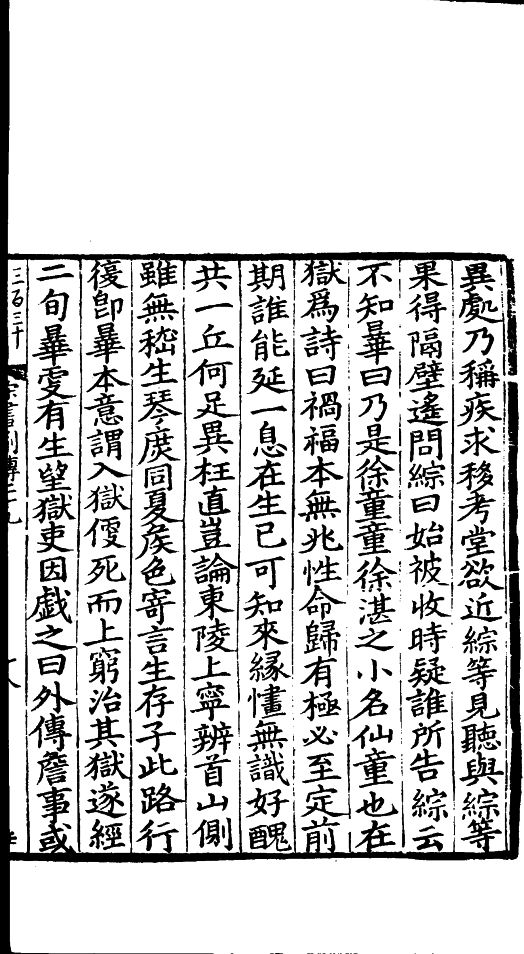 異處乃稱疾求移考堂欲近綜等見聽與綜等
果得隔壁遙問綜曰始被收時疑誰所告綜云
不知曄曰乃是徐童童徐湛之小名仙童也在
獄爲詩曰禍福本無兆性命歸有極必至定前
期誰能延一息在生已可知來緣㦎無識好醜
共一丘何足異枉直豈論東陵上寧辨首山側
雖無嵇生琴庶同夏侯色寄言生存子此路行
復卽曄本意謂入獄便死而上窮治其獄遂經
二旬曄更有生望獄吏因戲之曰外傳詹事或
三百三十 宋書列傳二十九